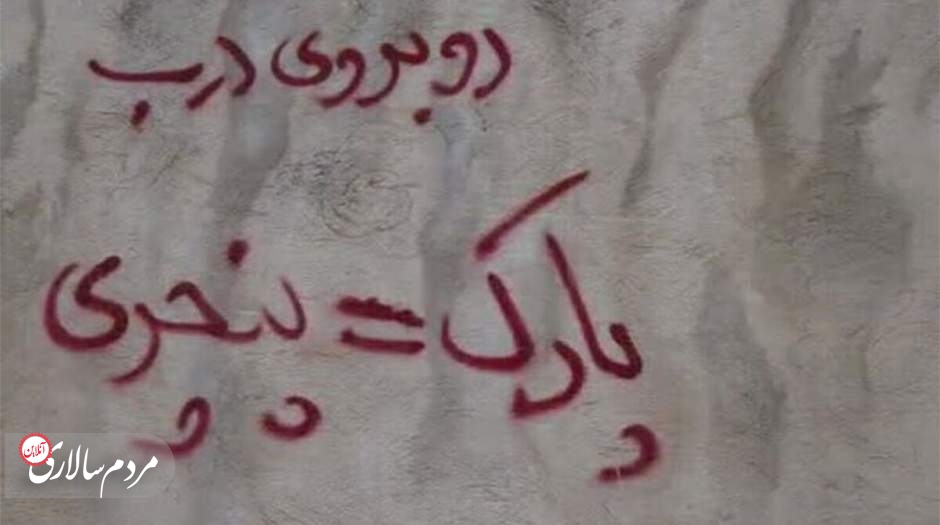 روبروی درب
پارک = پنچری
مردم‌سالاری آنلاین